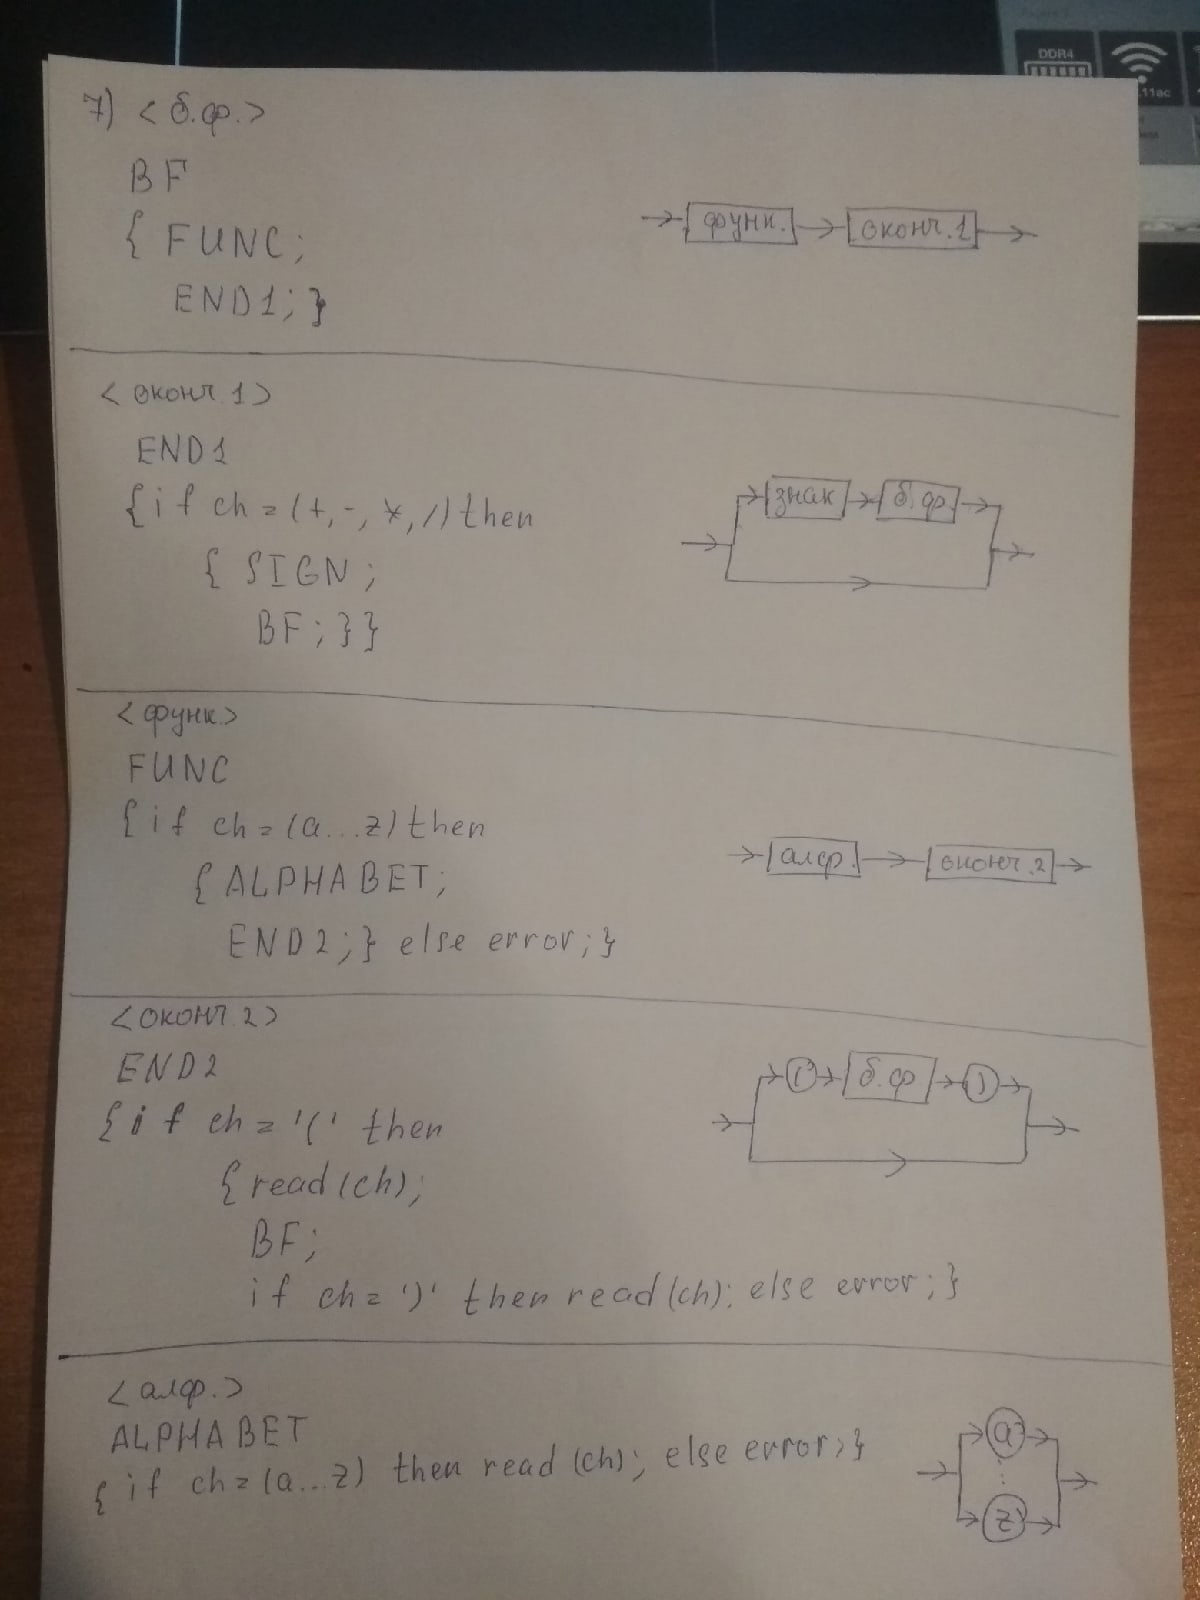 DDR4
.11ac
7) <б.ф.>
BF
{ FUNC;
END1; }
функ.
оконч.1
<оконч.1>
END1
{if ch = (+, -, *, /) then
{ SIGN;
BF; }}
знак
б.ф.
<функ.>
FUNC
{if ch = (a...z) then
{ ALPHABET;
END2; } else error; }
алф.
оконч.2
<оконч.2>
END2
{if ch = '(' then
{read (ch);
BF;
if ch = ')' then read (ch); else error; }
( б.ф )
<алф.>
ALPHABET
{ if ch = (a...z) then read (ch); else error; }
a
⋮
z